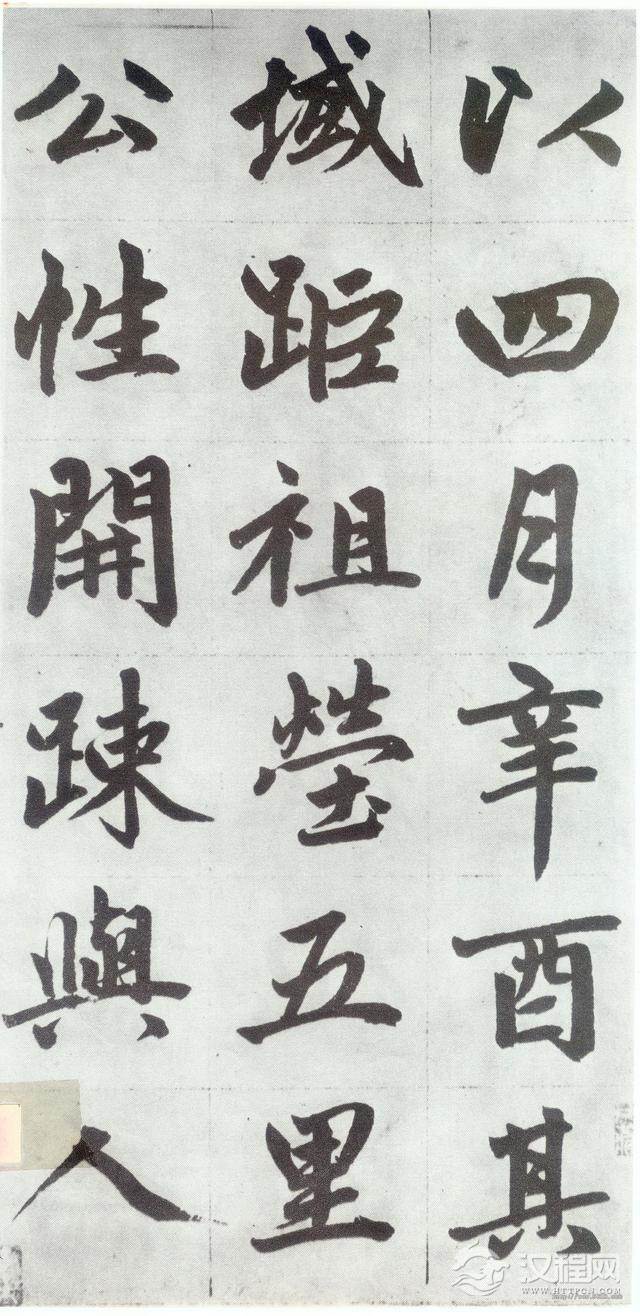 以四月辛酉其
域距祖塋五里
公性開踈與人
汉程网
WWW.HTTPCN.COM